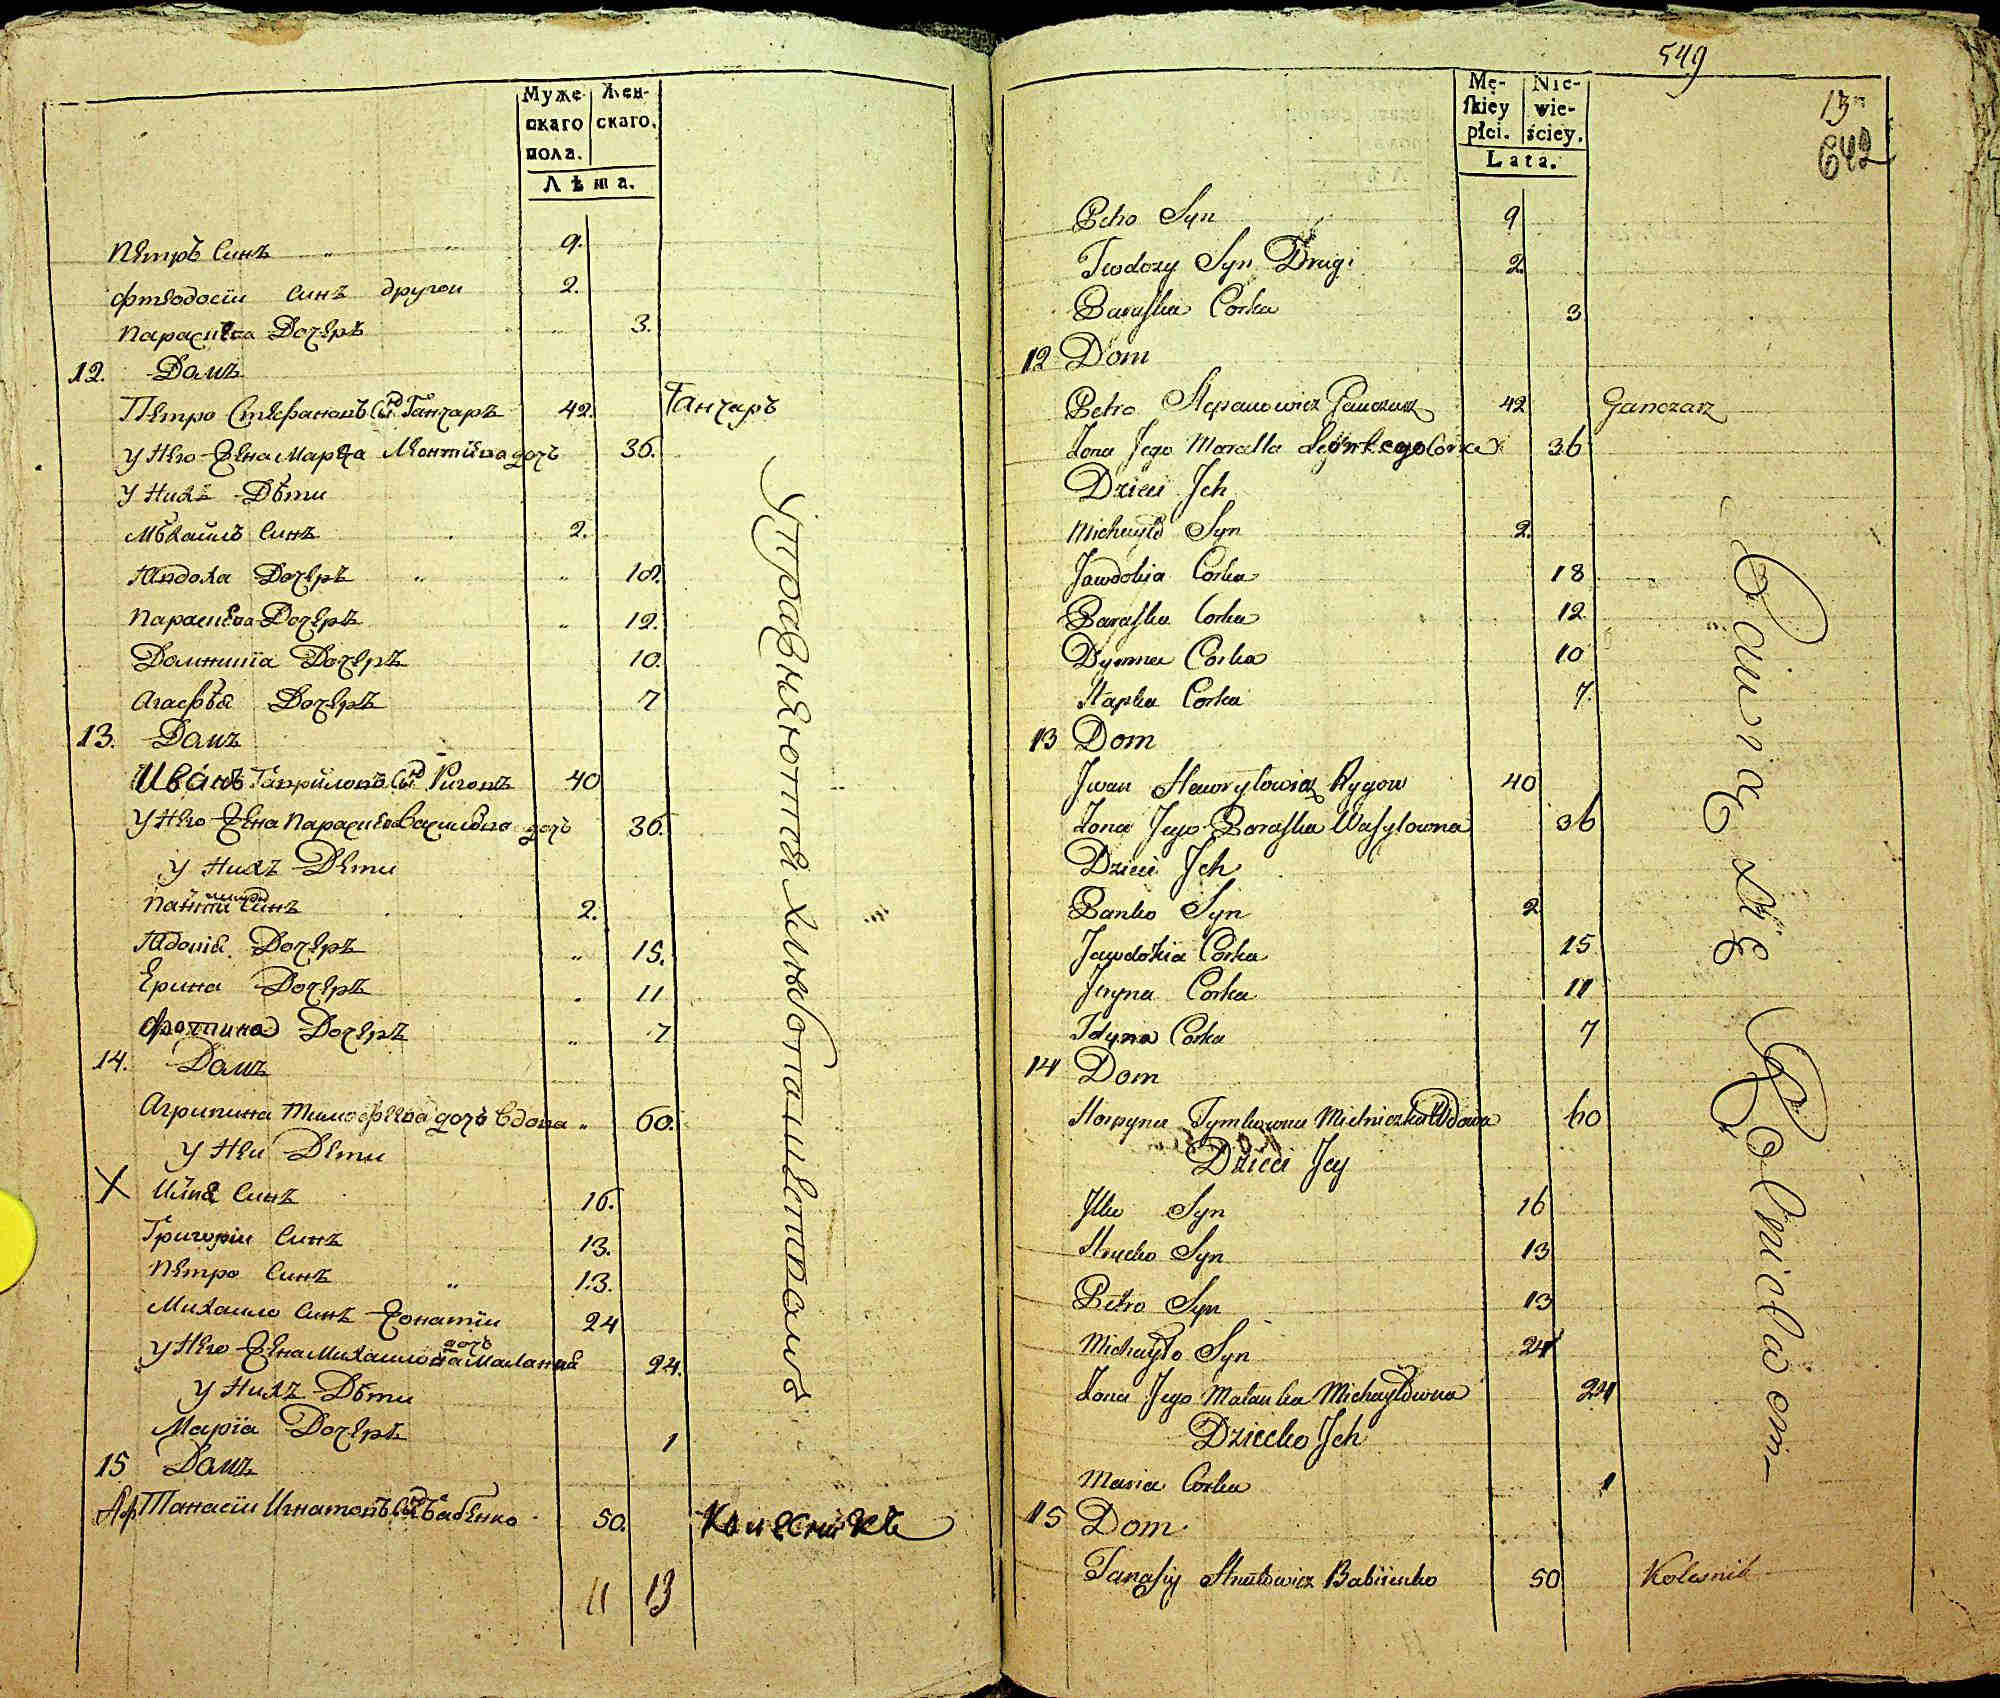 Муже-
скаго
пола.
Жен-
скаго.
Лѣта.
Петръ Синъ 9.
Фтеодосіи синъ другои 2.
Параскева Дочеръ 3.
12. Домъ
Петро Стефановъ Снъ Ганчаръ 42. Ганчаръ
у Него Жена Марѳа дочъ 36.
у Нихъ Дѣти
Мѣхаилъ Синъ 2.
Явдоха Дочеръ 18.
Параскева Дочеръ 12.
Домникіа Дочеръ 10.
Агафѣя Дочеръ 7
13. Домъ
Иванъ Гавриловъ Снъ Риговъ 40
у Него Жена Параскева Василѣва дочъ 36.
у Нихъ Дети
Синъ 2.
Дочеръ 15.
Ерина Дочеръ 11
Фотина Дочеръ 7
14. Домъ
Агрипина Тимофеева дочъ вдова 60.
у Неи Дети
X Илия Синъ 16.
Григории Синъ 13.
Петро Синъ 13.
Михаило Синъ Жонатіи 24
у Него Жена Михаилова дочъ Маланія 24.
у Нихъ Дѣти
Маріа Дочеръ 1
15 Домъ
Афтанасіи Игнатовъ Снъ Бабенко 50. Колесникъ
11 13
упражняются хлѣбопашествомъ
549
13
642
Mę-
skiey
płci.
Nie-
wie-
ściey.
Lata.
Petro Syn 9
Teodozy Syn Drugi 2
Paraska Corka 3
12 Dom
Petro Stepanowicz Ganczarz 42 Ganczarz
Żona Jego Marcella Corka 36
Dzieci Jch
Michayło Syn 2.
Jawdokija Corka 18
Paraska Corka 12
Dymna Corka 10
Hapka Corka 7.
13 Dom
Jwan Hawryłowicz Rygow 40
Żona Jego Paraska Wasylowna 36
Dzieci Jch
Panko Syn 2
Jawdokia Corka 15
Jryna Corka 11
Fotyna Corka 7
14 Dom
Horpyna Tymkowna Mielniczka Wdowa 60
Dzieci Jey
Jlko Syn 16
Hrycko Syn 13
Petro Syn 13
Michayło Syn 24
Żona Jego Małanka Michayłowna 24
Dziecko Jch
Maria Corka 1
15 Dom
Tanasiy Hnatowicz Babiienko 50 Kolesnik
Baiurą się Rolnictwem